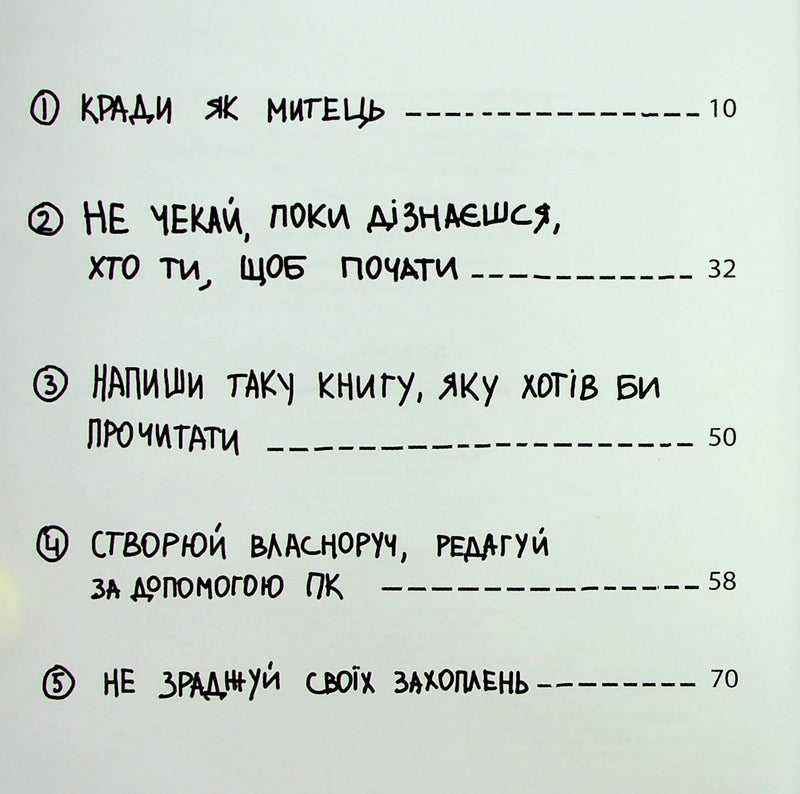 ① КРАДИ ЯК МИТЕЦЬ ---------------- 10
② НЕ ЧЕКАЙ, ПОКИ ДІЗНАЄШСЯ,
ХТО ТИ, ЩОБ ПОЧАТИ ------------ 32
③ НАПИШИ ТАКУ КНИГУ, ЯКУ ХОТІВ БИ
ПРОЧИТАТИ --------------------- 50
④ СТВОРЮЙ ВЛАСНОРУЧ, РЕДАГУЙ
ЗА ДОПОМОГОЮ ПК ---------------- 58
⑤ НЕ ЗРАДЖУЙ СВОЇХ ЗАХОПЛЕНЬ -------- 70